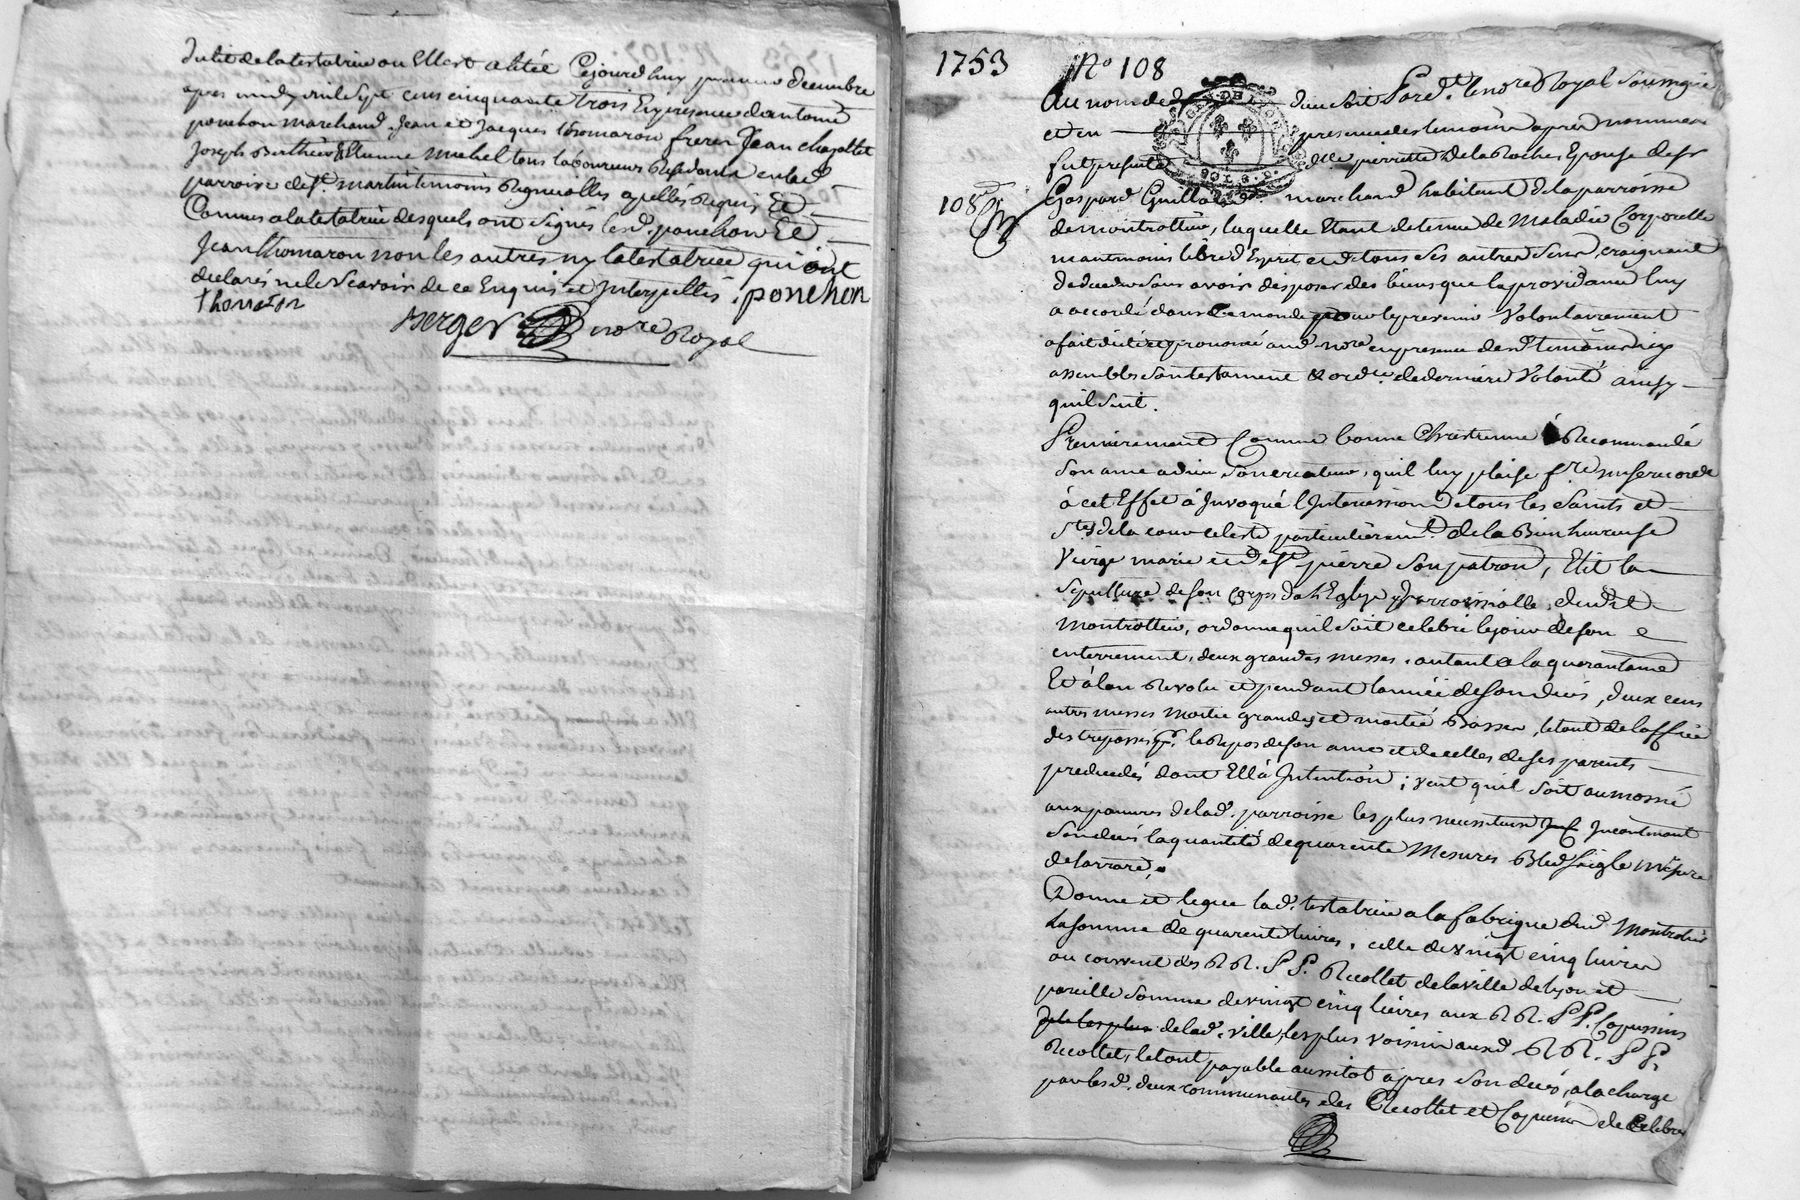 du lit de la testatrice ou Elle est alitée Cejourdhuy premier decembre
apres midy mil sept cens cinquante trois En presence dantoine
ponchon marchand, Jean et Jacques thomaron freres Jean chazottet
Joseph Berthier & Etienne Michel tous laboureurs Residents en lad.
parroisse de St martin temoins Requis et appellés
Connus a la testatrice desquels ont signés led. ponchon Et
Jean thomaron non les autres ny la testatrice qui ont
declarés ne le scavoir de ce Enquis et Interpellés. ponchon
thomaron
Berger nore Royal
1753 No 108
Au nom de dieu soit Pard. le nore Royal soussigné
et en presence des temoins apres nommés
fut presente dlle pierrette de la Roche Epouse de sr
108
Gaspard Guillard marchand habitant de la parroisse
de montrottier, laquelle Etant detenue de Maladie Corporelle
neantmoins libre d'Esprit et de tous ses autres sens, craignant
de deceder sans avoir disposer des biens que la providance luy
a accordé dans ce monde pour le prevenir Volontairement
a fait dicté et prononcé aud. nore en presence desd. temoins
assemblés son testament & ord.ce de derniere Volonté ainsy
quil suit.
Premierement Comme bonne Chrestienne à Recommandé
son ame a dieu son createur, quil luy plaise fre misericorde
à cet Effet à Invoqué l'Intercession de tous les Saints et
Stes de la cour celeste particulierem.t de la Bienheureuse
Vierge marie et de St pierre son patron, Elit la
sepulture de son corps da l'Eglize parroissialle dud.t
Montrottier, ordonne quil soit celebré le jour de son
enterrement, deux grandes messes, autant a la quarantaine
Et à lan Revolu et pendant lannée de son deces, deux cens
autres messes moitié grandes et moitié Basses, le tout de loffice
des trepassés pr. le Repos de son ame et de celles de ses parents
predecedés dont Ell à Intention; veut quil soit aumosné
aux pauvres de lad. parroisse les plus necessiteux Incontinent
son deces la quantité de quarente Mesures Bled seigle mesure
de larrare,
Donne et legue lad. testatrice a la fabrique dud. Montrotier
la somme de quarente livres, celle de vingt cinq livres
au couvent des RR. PP. Recollet de la ville de lyon et
pareille somme de vingt cinq livres aux RR. PP. Capussins
de lad. ville, les plus voisins auxd. RR. PP.
Recollet, le tout payable aussitot apres son deces, a la charge
par lesd. deux communautés des Recollet et Capucin de Celebrer